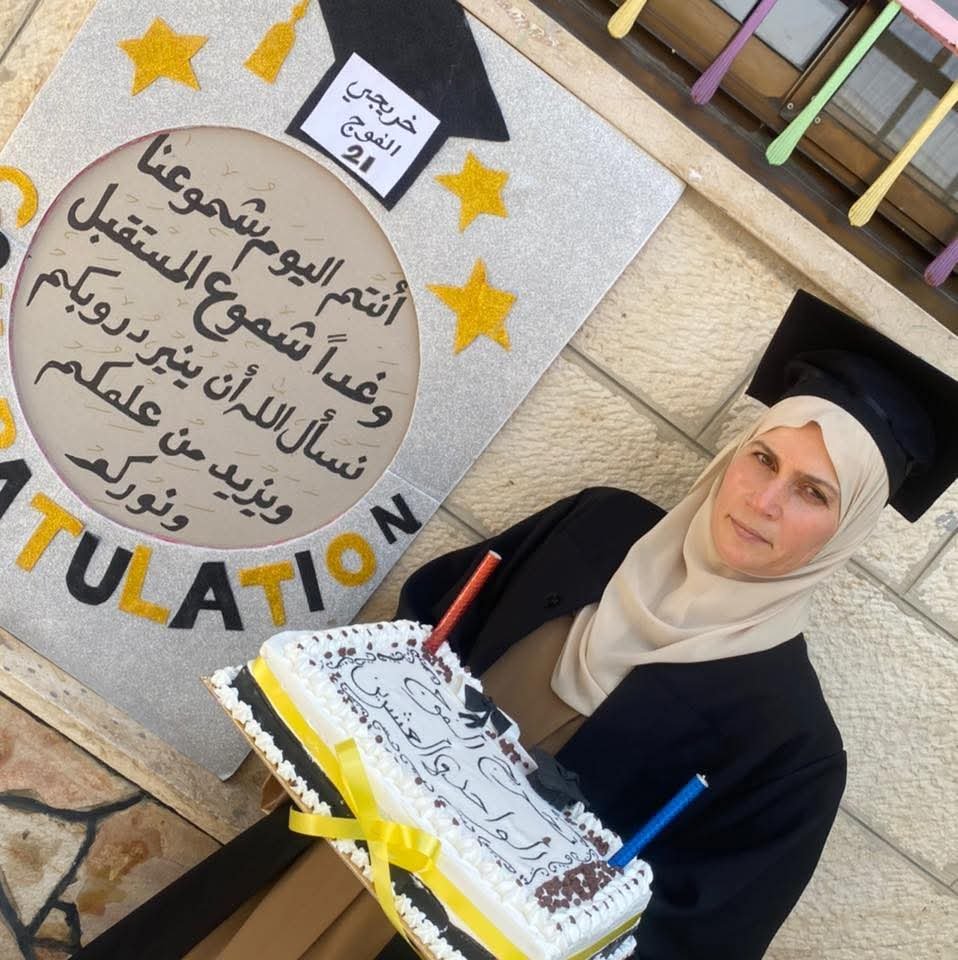 خريجي
الفوج
21
أنتم اليوم شموعنا
وغداً شموع المستقبل
نسأل الله أن ينير دروبكم
ويزيد من علمكم
ونوركم
ATULATION
الفوج
الواحد والعشرين